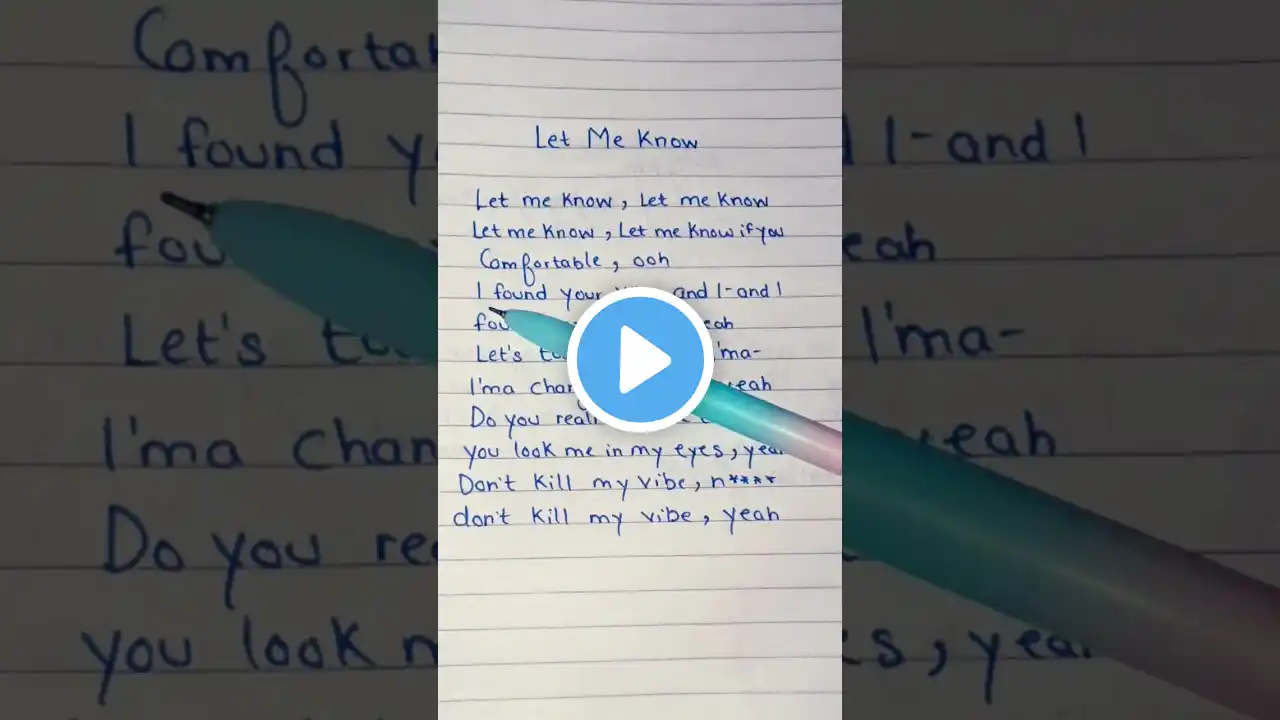 Let Me Know
Let me know, Let me know
Let me know, Let me know if you
Comfortable, ooh
I found your and I-and I
Let's I'ma-
I'ma yeah
Do you
you look me in my eyes,
Don't kill my vibe, n****
don't kill my vibe, yeah